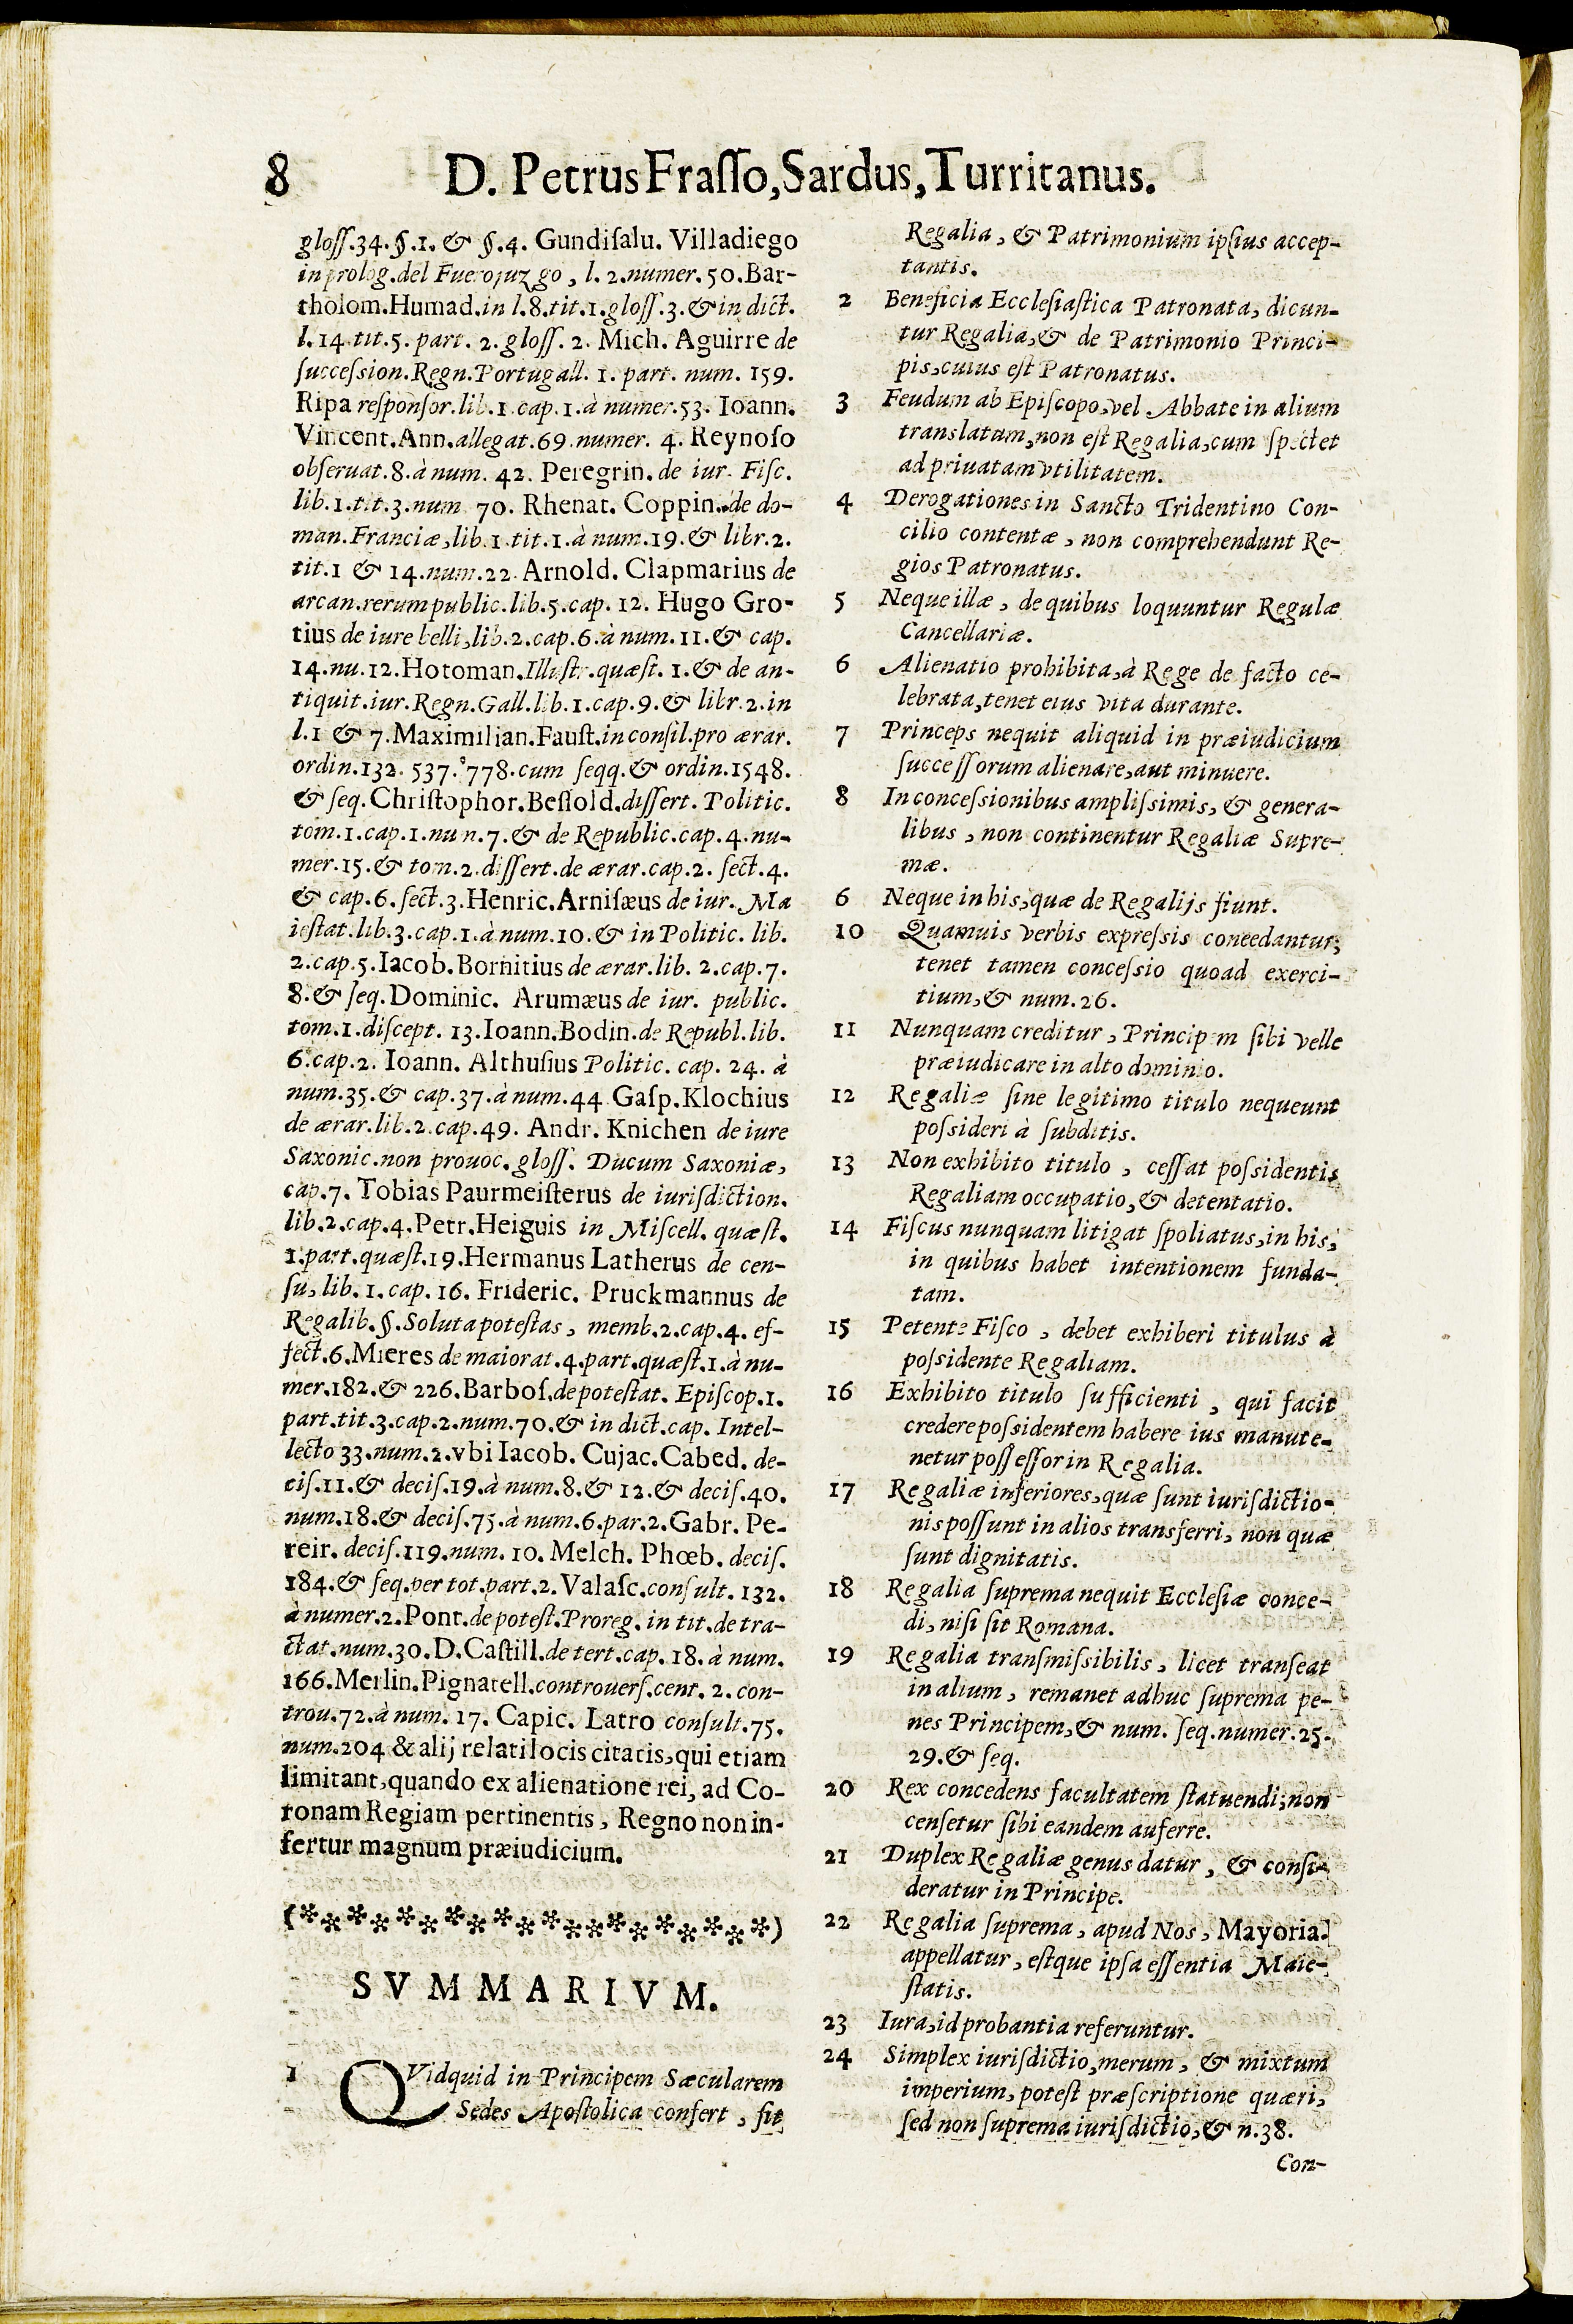 8 D. Petrus Fraſſo, Sardus, Turritanus.
gloſſ.34.§.1. & §.4. Gundiſalu. Villadiego
in prolog.del Fuero juzgo, l. 2.numer.50.Bar-
tholom.Humad.in l.8.tit.1.gloſſ.3.& in dict.
l.14.tit.5. part. 2. gloſſ. 2. Mich. Aguirre de
ſucceſsion.Regn.Portugall. 1. part. num. 159.
Ripa reſponſor.lib.1.cap.1.à numer.53. Ioann.
Vincent.Ann.allegat.69.numer. 4. Reynoſo
obſeruat.8.à num. 42. Peregrin. de iur. Fiſc.
lib.1.tit.3.num 70. Rhenat. Coppin. de do-
man.Franciæ, lib.1.tit.1.à num.19.& libr.2.
tit.1 & 14.num.22. Arnold. Clapmarius de
arcan.rerum public.lib.5.cap. 12. Hugo Gro-
tius de iure belli, lib.2.cap.6.à num.11.& cap.
14.nu.12.Hotoman.Illuſtr.quæſt. 1.& de an-
tiquit.iur.Regn.Gall.lib.1.cap.9.& libr.2.in
l.1 & 7.Maximilian.Fauſt.in conſil.pro ærar.
ordin.132. 537. 778.cum ſeqq.& ordin.1548.
& ſeq.Chriſtophor.Beſſold.diſſert. Politic.
tom.1.cap.1.nun.7.& de Republic.cap.4.nu-
mer.15.& tom.2.diſſert.de ærar.cap.2. ſect.4.
& cap.6.ſect.3.Henric.Arniſæus de iur. Ma
ieſtat.lib.3.cap.1.à num.10.& in Politic. lib.
2.cap.5.Iacob.Bornitius de ærar.lib. 2.cap.7.
8.& ſeq.Dominic. Arumæus de iur. public.
tom.1.diſcept. 13.Ioann.Bodin.de Republ.lib.
6.cap.2. Ioann. Althuſius Politic. cap. 24. à
num.35.& cap.37.à num.44 Gaſp.Klochius
de ærar.lib.2.cap.49. Andr. Knichen de iure
Saxonic.non prouoc.gloſſ. Ducum Saxoniæ,
cap.7. Tobias Paurmeiſterus de iuriſdiction.
lib.2.cap.4.Petr.Heiguis in Miſcell. quæſt.
1.part.quæſt.19.Hermanus Latherus de cen-
ſu, lib. 1. cap. 16. Frideric. Pruckmannus de
Regalib.§.Soluta poteſtas, memb.2.cap.4. ef-
fect.6.Mieres de maiorat.4.part.quæſt.1.à nu-
mer.182.& 226.Barboſ.de poteſtat. Epiſcop.1.
part.tit.3.cap.2.num.70.& in dict.cap. Intel-
lecto 33.num.2.vbi Iacob. Cujac.Cabed. de-
ciſ.11.& deciſ.19.à num.8.& 12.& deciſ.40.
num.18.& deciſ.75.à num.6.par.2.Gabr. Pe-
reir. deciſ.119.num. 10. Melch. Phœb. deciſ.
184.& ſeq.per tot.part.2.Valaſc.conſult. 132.
à numer.2.Pont.de poteſt.Proreg.in tit.de tra-
ctat.num.30.D.Caſtill.de tert.cap. 18. à num.
166.Merlin.Pignatell.controuerſ.cent. 2. con-
trou.72.à num. 17. Capic. Latro conſult.75.
num.204 & alij relati locis citatis, qui etiam
limitant, quando ex alienatione rei, ad Co-
ronam Regiam pertinentis, Regno non in-
fertur magnum præiudicium.
(********************)
SVMMARIVM.
1 QVidquid in Principem Sæcularem
Sedes Apoſtolica confert, fit
Regalia, & Patrimonium ipſius accep-
tantis.
2 Beneficia Eccleſiaſtica Patronata, dicun-
tur Regalia, & de Patrimonio Princi-
pis, cuius eſt Patronatus.
3 Feudum ab Epiſcopo, vel Abbate in alium
translatum, non eſt Regalia, cum ſpectet
ad priuatam vtilitatem.
4 Derogationes in Sancto Tridentino Con-
cilio contentæ, non comprehendunt Re-
gios Patronatus.
5 Neque illæ, de quibus loquuntur Regulæ
Cancellariæ.
6 Alienatio prohibita, à Rege de facto ce-
lebrata, tenet eius vita durante.
7 Princeps nequit aliquid in præiudicium
ſucceſſorum alienare, aut minuere.
8 In conceſsionibus ampliſsimis, & genera-
libus, non continentur Regaliæ Supre-
mæ.
6 Neque in his, quæ de Regalijs fiunt.
10 Quamuis verbis expreſsis concedantur;
tenet tamen conceſsio quoad exerci-
tium, & num.26.
11 Nunquam creditur, Principem ſibi velle
præiudicare in alto dominio.
12 Regaliæ ſine legitimo titulo nequeunt
poſsideri à ſubditis.
13 Non exhibito titulo, ceſſat poſsidentis
Regaliam occupatio, & detentatio.
14 Fiſcus nunquam litigat ſpoliatus, in his,
in quibus habet intentionem funda-
tam.
15 Petente Fiſco, debet exhiberi titulus à
poſsidente Regaliam.
16 Exhibito titulo ſufficienti, qui facit
credere poſsidentem habere ius manute-
netur poſſeſſor in Regalia.
17 Regaliæ inferiores, quæ ſunt iuriſdictio-
nis poſſunt in alios transferri, non quæ
ſunt dignitatis.
18 Regalia ſuprema nequit Eccleſiæ conce-
di, niſi ſit Romana.
19 Regalia tranſmiſsibilis, licet tranſeat
in alium, remanet adhuc ſuprema pe-
nes Principem, & num. ſeq.numer.25.
29.& ſeq.
20 Rex concedens facultatem ſtatuendi, non
cenſetur ſibi eandem auferre.
21 Duplex Regaliæ genus datur, & conſi-
deratur in Principe.
22 Regalia ſuprema, apud Nos, Mayoria.
appellatur, eſtque ipſa eſſentia Maie-
ſtatis.
23 Iura, id probantia referuntur.
24 Simplex iuriſdictio, merum, & mixtum
imperium, poteſt præſcriptione quæri,
ſed non ſuprema iuriſdictio, & n.38.
Con-